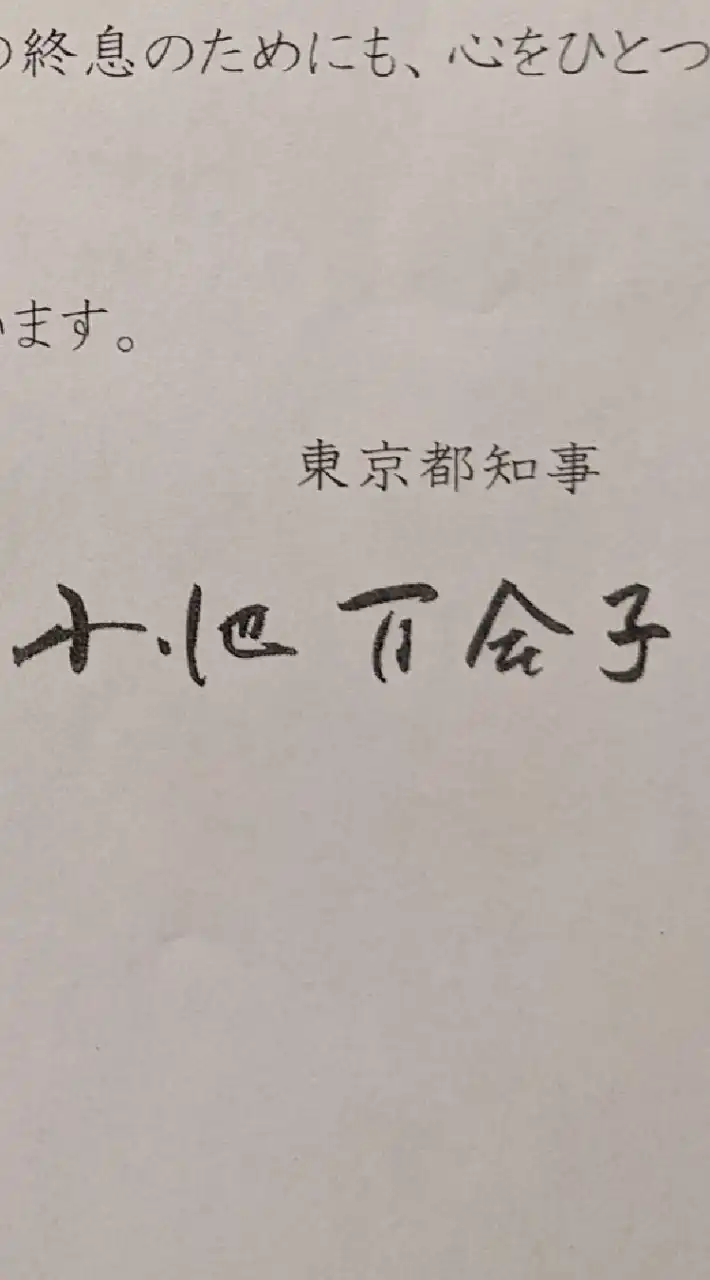 の終息のためにも、心をひとつ
います。
東京都知事
小池百合子